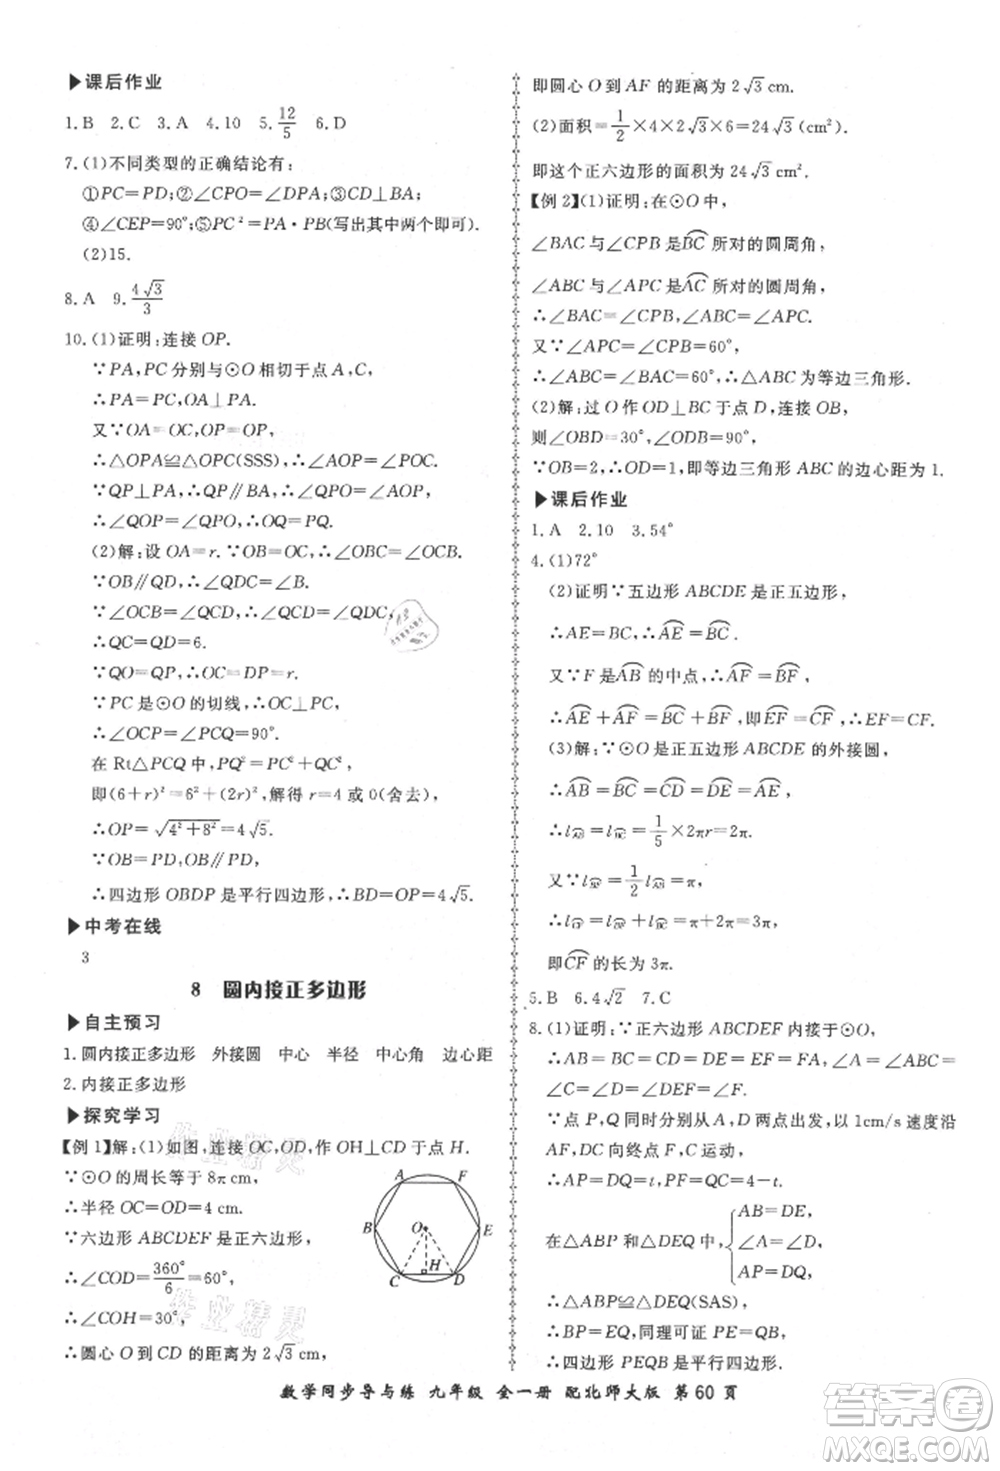 ▶课后作业
1.B 2.C 3.A 4.10 5.12/5 6.D
7.(1)不同类型的正确结论有:
①PC=PD;②∠CPO=∠DPA;③CD⊥BA;
④∠CEP=90°;⑤PC²=PA·PB(写出其中两个即可).
(2)15.
8.A 9.4√3/3
10.(1)证明:连接OP.
∵PA,PC分别与⊙O相切于点A,C,
∴PA=PC,OA⊥PA.
又∵OA=OC,OP=OP,
∴△OPA≌△OPC(SSS).∴∠OPA=∠OPC.
∵QP⊥PA,∴QP∥BA,∴∠QPO=∠OPA,
∴∠QOP=∠QPO,∴OQ=PQ.
(2)解:设OA=r.∵OB=OC,∴∠OBC=∠OCB.
∵OB∥QD,∴∠QDC=∠B.
∵∠OCB=∠QCD,∴∠QCD=∠QDC,
∴QC=QD=6.
∵QO=QP,∴OC=DP=r.
∵PC是⊙O的切线,∴OC⊥PC,
∴∠OCP=∠PCQ=90°.
在Rt△PCQ中,PQ²=PC²+QC²,
即(6+r)²=6²+(2r)²,解得r=4或0(舍去),
∴OP=√(4²+8²)=4√5.
∵OB=PD,OB∥PD,
∴四边形OBDP是平行四边形,∴BD=OP=4√5.
▶中考在线
3
8 圆内接正多边形
▶自主预习
1.圆内接正多边形 外接圆 中心 半径 中心角 边心距
2.内接正多边形
▶探究学习
【例1】解:(1)如图,连接OC,OD,作OH⊥CD于点H.
∵⊙O的周长等于8π cm,
∴半径OC=OD=4 cm.
∵六边形ABCDEF是正六边形,
∴∠COD=360°/6=60°,
∴∠COH=30°,
∴圆心O到CD的距离为2√3 cm,
A F
B O E
H
C D
即圆心O到AF的距离为2√3 cm.
(2)面积=1/2×4×2√3×6=24√3(cm²),
即这个正六边形的面积为24√3 cm².
【例2】(1)证明:在⊙O中,
∠BAC与∠CPB是B͡C所对的圆周角,
∠ABC与∠APC是A͡C所对的圆周角,
∴∠BAC=∠CPB,∠ABC=∠APC.
又∵∠APC=∠CPB=60°,
∴∠ABC=∠BAC=60°,∴△ABC为等边三角形.
(2)解:过O作OD⊥BC于点D,连接OB,
则∠OBD=30°,∠ODB=90°.
∵OB=2,∴OD=1,即等边三角形ABC的边心距为1.
▶课后作业
1.A 2.10 3.54°
4.(1)72°
(2)证明∵五边形ABCDE是正五边形,
∴AE=BC,∴A͡E=B͡C.
又∵F是A͡B的中点,∴A͡F=B͡F,
∴A͡E+A͡F=B͡C+B͡F,即E͡F=C͡F,∴EF=CF.
(3)解:∵⊙O是正五边形ABCDE的外接圆,
∴A͡B=B͡C=C͡D=D͡E=A͡E,
∴l A͡B=l B͡C=1/5×2πr=2π,
又∵l B͡F=1/2 l A͡B=π,
∴l C͡F=l B͡F+l B͡C=π+2π=3π,
即C͡F的长为3π.
5.B 6.4√2 7.C
8.(1)证明:∵正六边形ABCDEF内接于⊙O,
∴AB=BC=CD=DE=EF=FA,∠A=∠ABC=
∠C=∠D=∠DEF=∠F.
∵点P,Q同时分别从A,D两点出发,以1cm/s速度沿
AF,DC向终点F,C运动,
∴AP=DQ=t,PF=QC=4-t.
在△ABP和△DEQ中,{AB=DE,
∠A=∠D,
AP=DQ,
∴△ABP≌△DEQ(SAS)
∴BP=EQ,同理可证PE=QB,
∴四边形PEQB是平行四边形.
数学同步导与练 九年级 全一册 配北师大版 第60页
作业精灵
作业精灵
答案圈
MXQE.COM